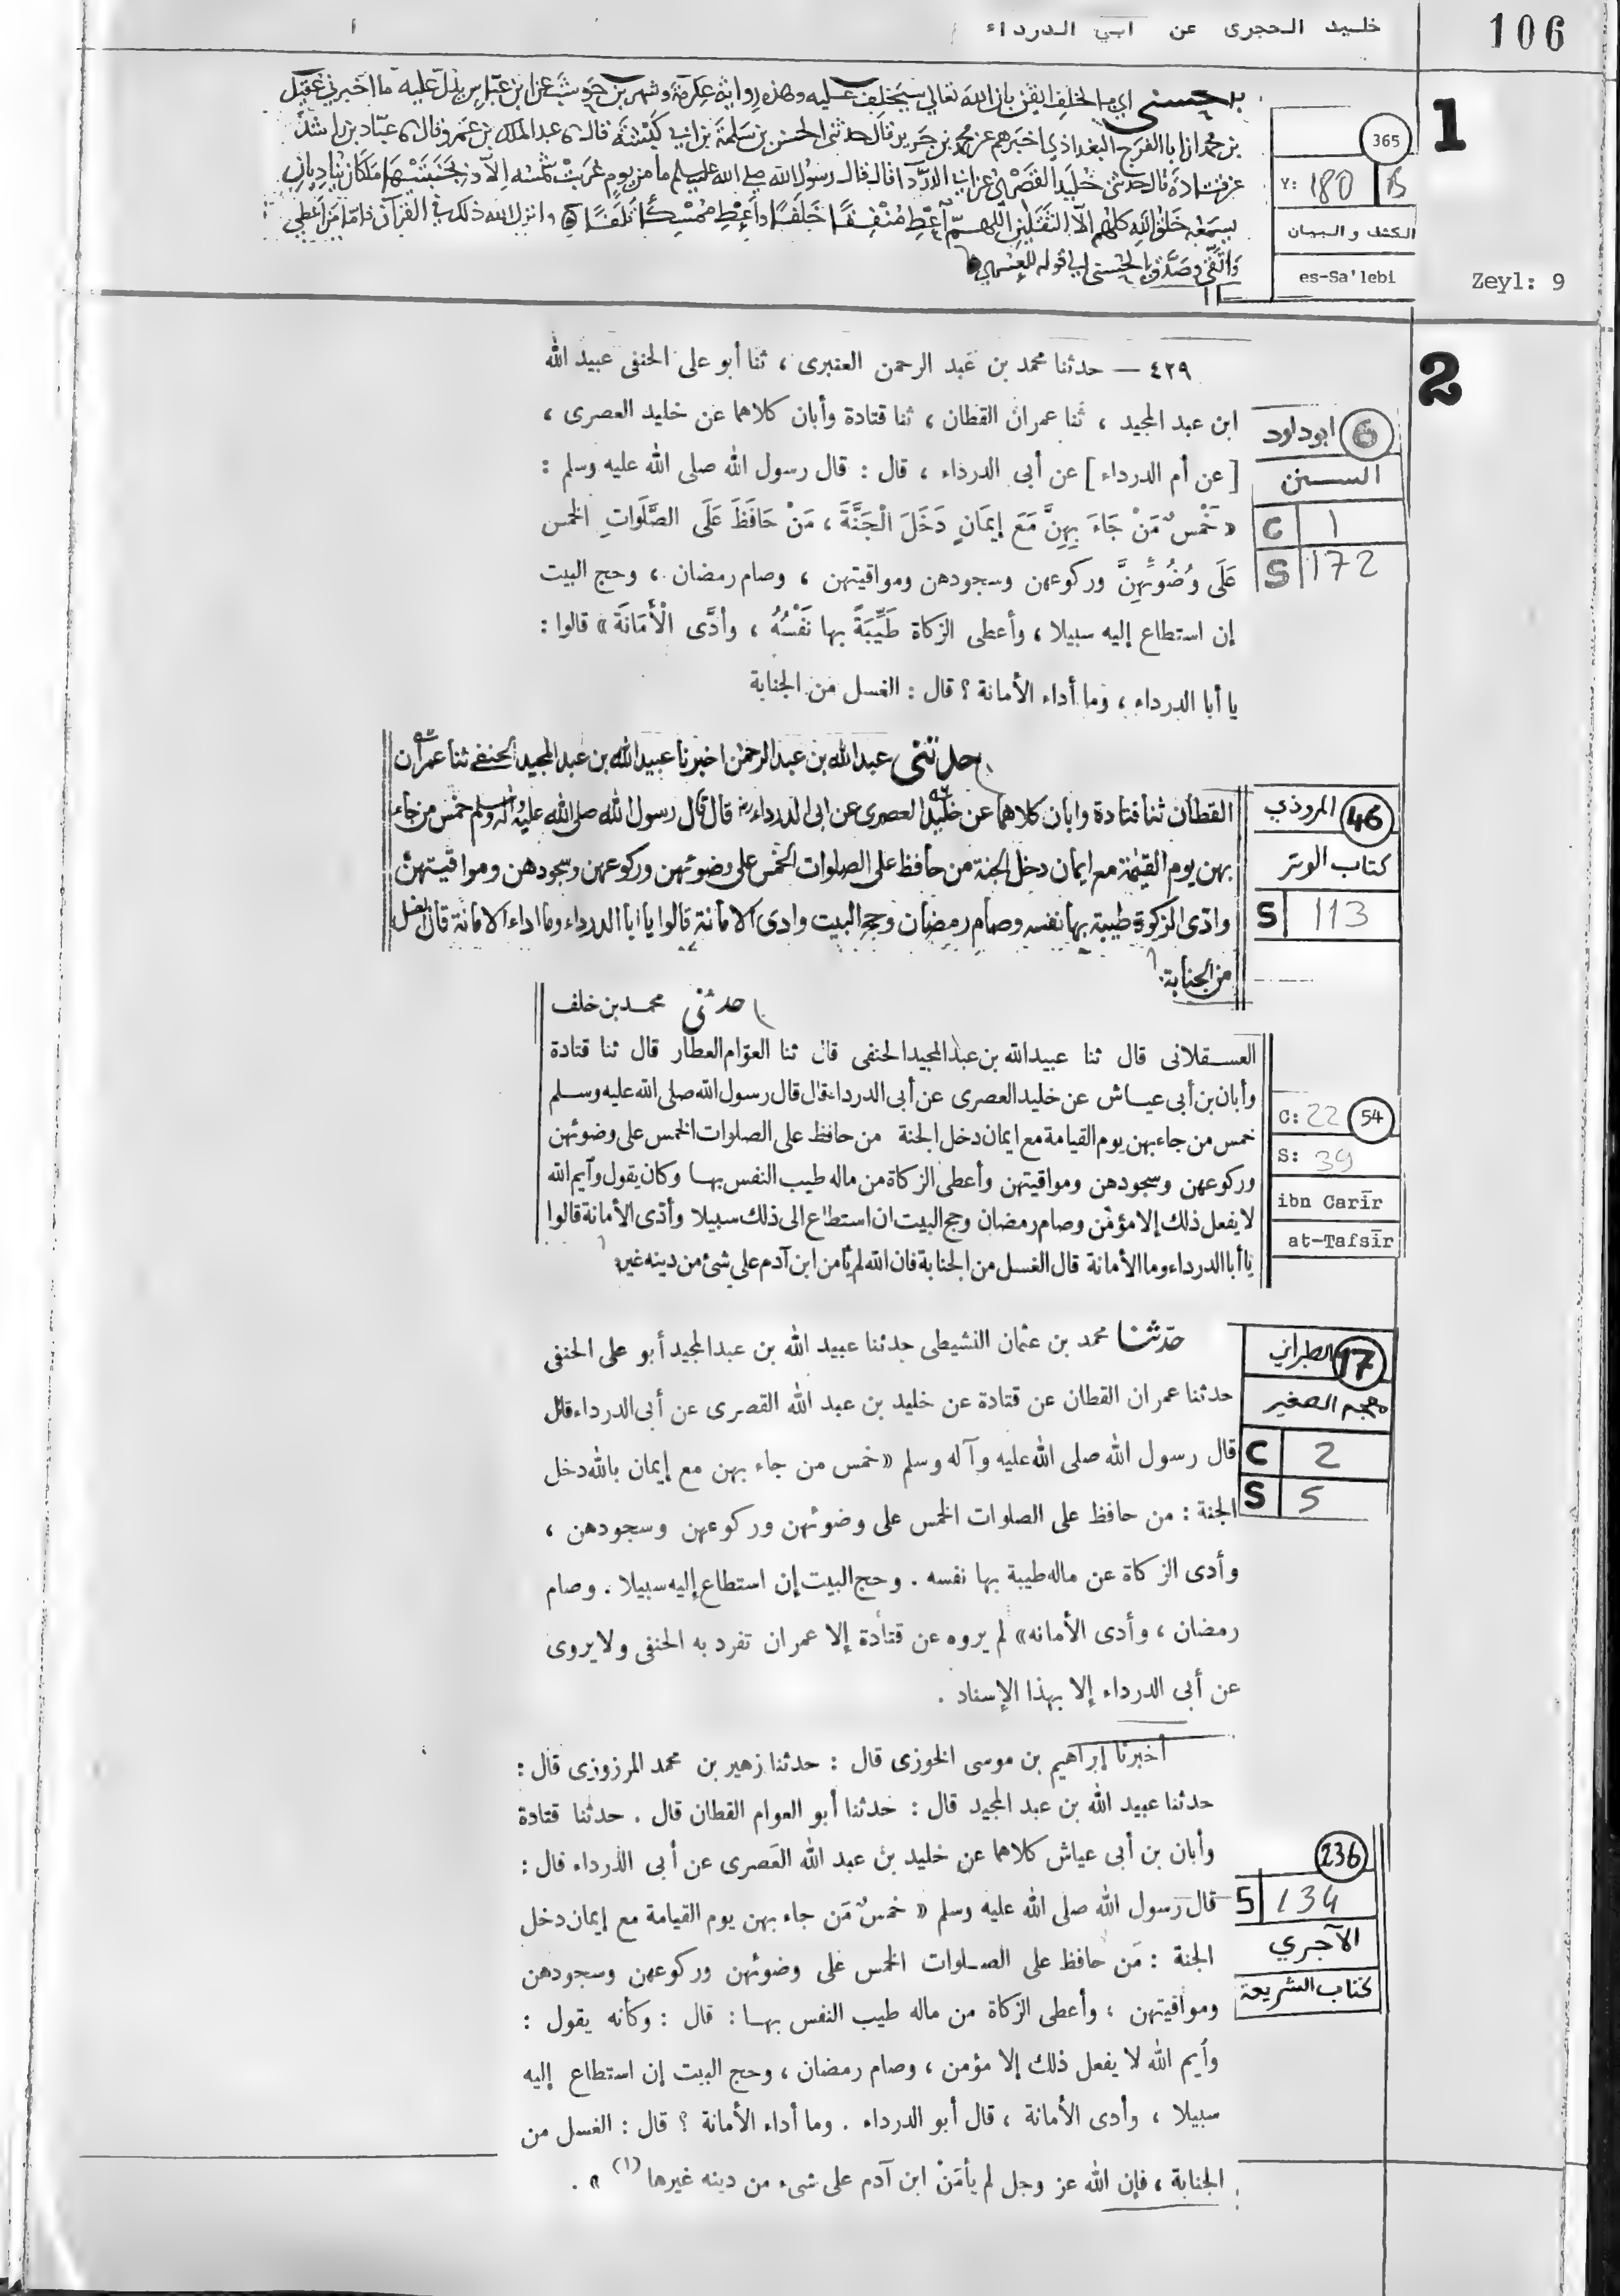 خليد الحجرى عن ابي الدرداء
106
1
365
Y: 180 B
الكشف والبيان
es-Sa'lebi
Zeyl: 9
بالحسنى اي بالخلف ايقن بان الله تعالي سيخلف عليه وهذه رواية عكرمة وشهر بن حوشب عن ابن عباس يدل عليه ما اخبرني عقيل
بن محمد ان ابا الفرج البغدادي اخبرهم عن محمد بن جرير قال حدثنى الحسن بن سلمة بن ابي كبشة قال عبد الملك بن عمرو قال عباد بن راشد
عن قتادة قال حدثنى خليد القصرى عن ابي الدردا قال قال رسول الله صلى الله عليه وسلم ما من يوم غربت شمسه الا وبجنبتها ملكان يناديان
يسمعه خلق الله كلهم الا الثقلين اللهم أعط منفقا خلفا واعط ممسكا تلفا وانزل الله ذلك في القرآن فاما من اعطي
واتقى وصدق بالحسنى الي قوله للعسرى
2
٤٢٩ — حدثنا محمد بن عبد الرحمن العنبرى ، ثنا أبو على الحنفى عبيد الله
ابن عبد المجيد ، ثنا عمران القطان ، ثنا قتادة وأبان كلاهما عن خليد العصرى ،
[ عن أم الدرداء ] عن أبى الدرداء ، قال : قال رسول الله صلى الله عليه وسلم :
« خَمْسٌ مَنْ جَاءَ بِهِنَّ مَعَ إيمَانٍ دَخَلَ الْجَنَّةَ ، مَنْ حَافَظَ عَلَى الصَّلَوَاتِ الخمس
عَلَى وُضُوئِهِنَّ وركوعهن وسجودهن ومواقيتهن ، وصام رمضان ، وحج البيت
إن استطاع إليه سبيلا ، وأعطى الزكاة طَيِّبَةً بها نَفْسُهُ ، وأدَّى الْأَمَانَةَ » قالوا :
يا أبا الدرداء ، وما أداء الأمانة ؟ قال : الغسل من الجنابة
6 ابوداود
السنن
C 1
S 172
حدثنى عبدالله بن عبدالرحمن اخبرنا عبيدالله بن عبدالمجيد الحنفى ثنا عمران
القطان ثنا قتادة وابان كلاهما عن خليد العصرى عن ابى الدرداء رض قال قال رسول الله صلى الله عليه واله وسلم خمس من جاء
بهن يوم القيمة مع ايمان دخل الجنة من حافظ على الصلوات الخمس على وضوئهن وركوعهن وسجودهن ومواقيتهن
وادى الزكوة طيبة بها نفسه وصام رمضان وحج البيت وادى الامانة قالوا يا ابا الدرداء وما اداء الامانة قال الغسل
من الجنابة
46 المروذي
كتاب الوتر
S 113
حدثنى محمد بن خلف
العسقلانى قال ثنا عبيدالله بن عبدالمجيد الحنفى قال ثنا العوّام العطار قال ثنا قتادة
وأبان بن أبى عياش عن خليد العصرى عن أبى الدرداء قال قال رسول الله صلى الله عليه وسلم
خمس من جاء بهن يوم القيامة مع ايمان دخل الجنة من حافظ على الصلوات الخمس على وضوئهن
وركوعهن وسجودهن ومواقيتهن وأعطى الزكاة من ماله طيب النفس بها وكان يقول وآيم الله
لا يفعل ذلك إلا مؤمن وصام رمضان وحج البيت ان استطاع الى ذلك سبيلا وأدّى الأمانة قالوا
يا أبا الدرداء وما الأمانة قال الغسل من الجنابة فان الله لم يأمن ابن آدم على شئ من دينه غيره
C: 22 54
S: 39
ibn Carīr
at-Tafsīr
حدّثنا محمد بن عثمان النشيطى حدثنا عبيد الله بن عبدالمجيد أبو على الحنفى
حدثنا عمران القطان عن قتادة عن خليد بن عبد الله القصرى عن أبى الدرداء قال
قال رسول الله صلى الله عليه وآله وسلم « خمس من جاء بهن مع إيمان بالله دخل
الجنة : من حافظ على الصلوات الخمس على وضوئهن وركوعهن وسجودهن ،
وأدى الزكاة عن ماله طيبة بها نفسه . وحج البيت إن استطاع إليه سبيلا . وصام
رمضان ، وأدى الأمانه » لم يروه عن قتادة إلا عمران تفرد به الحنفى ولا يروى
عن أبى الدرداء إلا بهذا الإسناد .
17 الطبراني
معجم الصغير
C 2
S 5
أخبرنا إبراهيم بن موسى الخوزى قال : حدثنا زهير بن محمد المرزوزى قال :
حدثنا عبيد الله بن عبد المجيد قال : حدثنا أبو العوام القطان قال . حدثنا قتادة
وأبان بن أبى عياش كلاهما عن خليد بن عبد الله العَصرى عن أبى الدرداء قال :
قال رسول الله صلى الله عليه وسلم « خمسٌ مَن جاء بهن يوم القيامة مع إيمان دخل
الجنة : مَن حافظ على الصلوات الخمس على وضوئهن وركوعهن وسجودهن
ومواقيتهن ، وأعطى الزكاة من ماله طيب النفس بها : قال : وكأنه يقول :
وأيم الله لا يفعل ذلك إلا مؤمن ، وصام رمضان ، وحج البيت إن استطاع إليه
سبيلا ، وأدى الأمانة ، قال أبو الدرداء . وما أداء الأمانة ؟ قال : الغسل من
الجنابة ، فإن الله عز وجل لم يأمَنْ ابن آدم على شىء من دينه غيرها (١) » .
236
S 134
الآجري
كتاب الشريعة